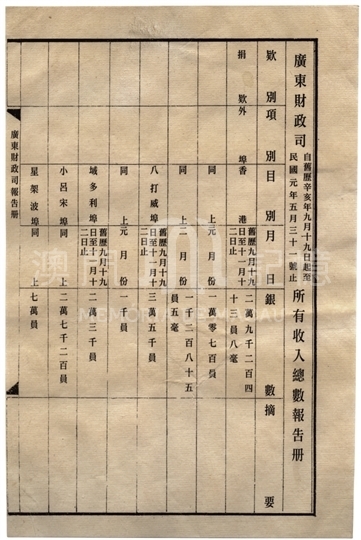 廣東財政司自舊歷辛亥年九月十九日起至民國元年五月三十一號止所有收入總數報告册
欵別項別目別月日銀數摘要
捐欵外埠香港舊歷九月十九日至十一月十二日止二萬九千二百四十三員八毫
同上元月份一萬零七百員
同上二月份一千二百八十五員五毫
八打威埠舊歷九月十九日至十一月十二日止三萬五千員
同上元月份一千員
域多利埠舊歷九月十九日至十一月十二日止二萬三千員
小呂宋埠同上二萬七千二百員
星架波埠同上七萬員
廣東財政司報告册